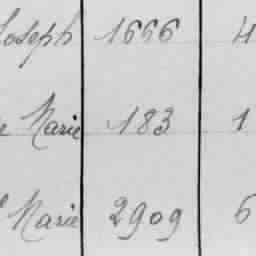 Joseph 1666 4
e Marie 183 1
Marie 2909 6